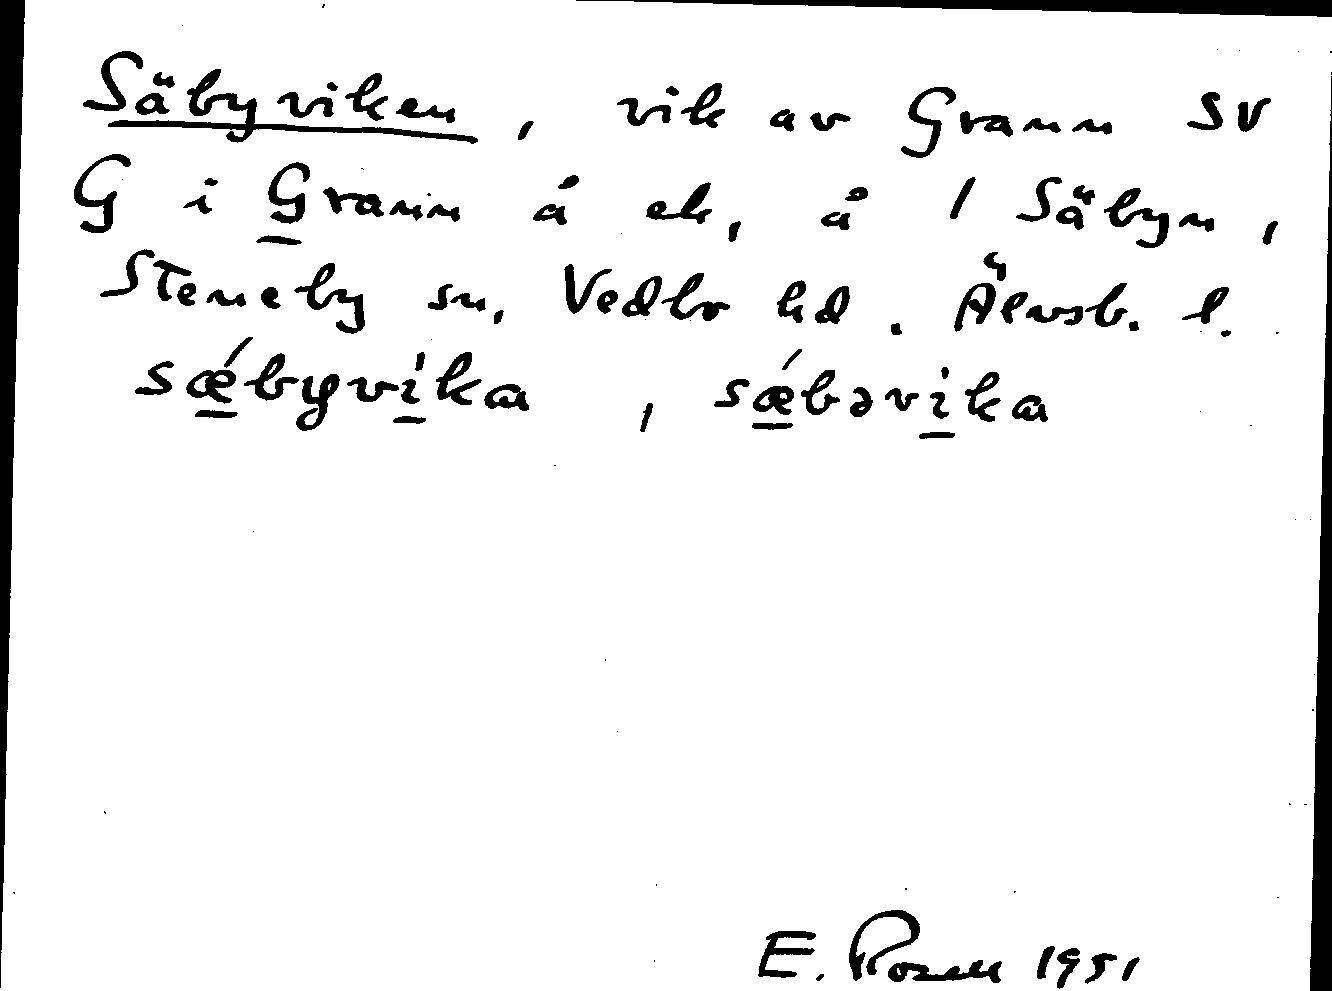 Säbyviken, vik av Grann SV
G i Grann å ek, å 1 Säbyn,
Steneby sn, Vedbo hd. Älvsb. l.
sǽbyvi̍ka, sǽbəvi̍ka
E. Rosell 1951